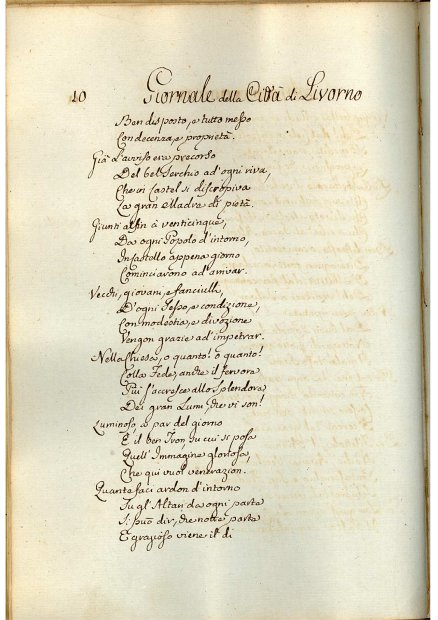 10
Giornale della Città di Livorno
Ben disposto, e tutto messo
Con decenza, e proprietà.
Già l'avviso era precorso
Del bel Serchio ad'ogni riva,
Che in Castel si discopriva
La gran Madre di pietà.
Giunti alfin à venticinque,
Da ogni Popolo d'intorno,
In Castello appena giorno
Cominciavono ad'arrivar.
Vecchi, giovani, e fanciulli,
D'ogni Sesso, e condizione,
Con modestia, e divozione
Vengon grazie ad'impetrar.
Nella Chiesa, o quanto! o quanto!
Colla Fede, anche il fervore
Più s'accresce allo Splendore
Dei gran Lumi, che vi son!
Luminoso, a par del giorno
È il ben Tron, su cui si posa
Quell'Immagine gloriosa,
Che qui vuol venerazion.
Quante faci ardon d'intorno
Su gl'Altari da ogni parte
Si può dir, che notte parte
E grazioso viene il dì